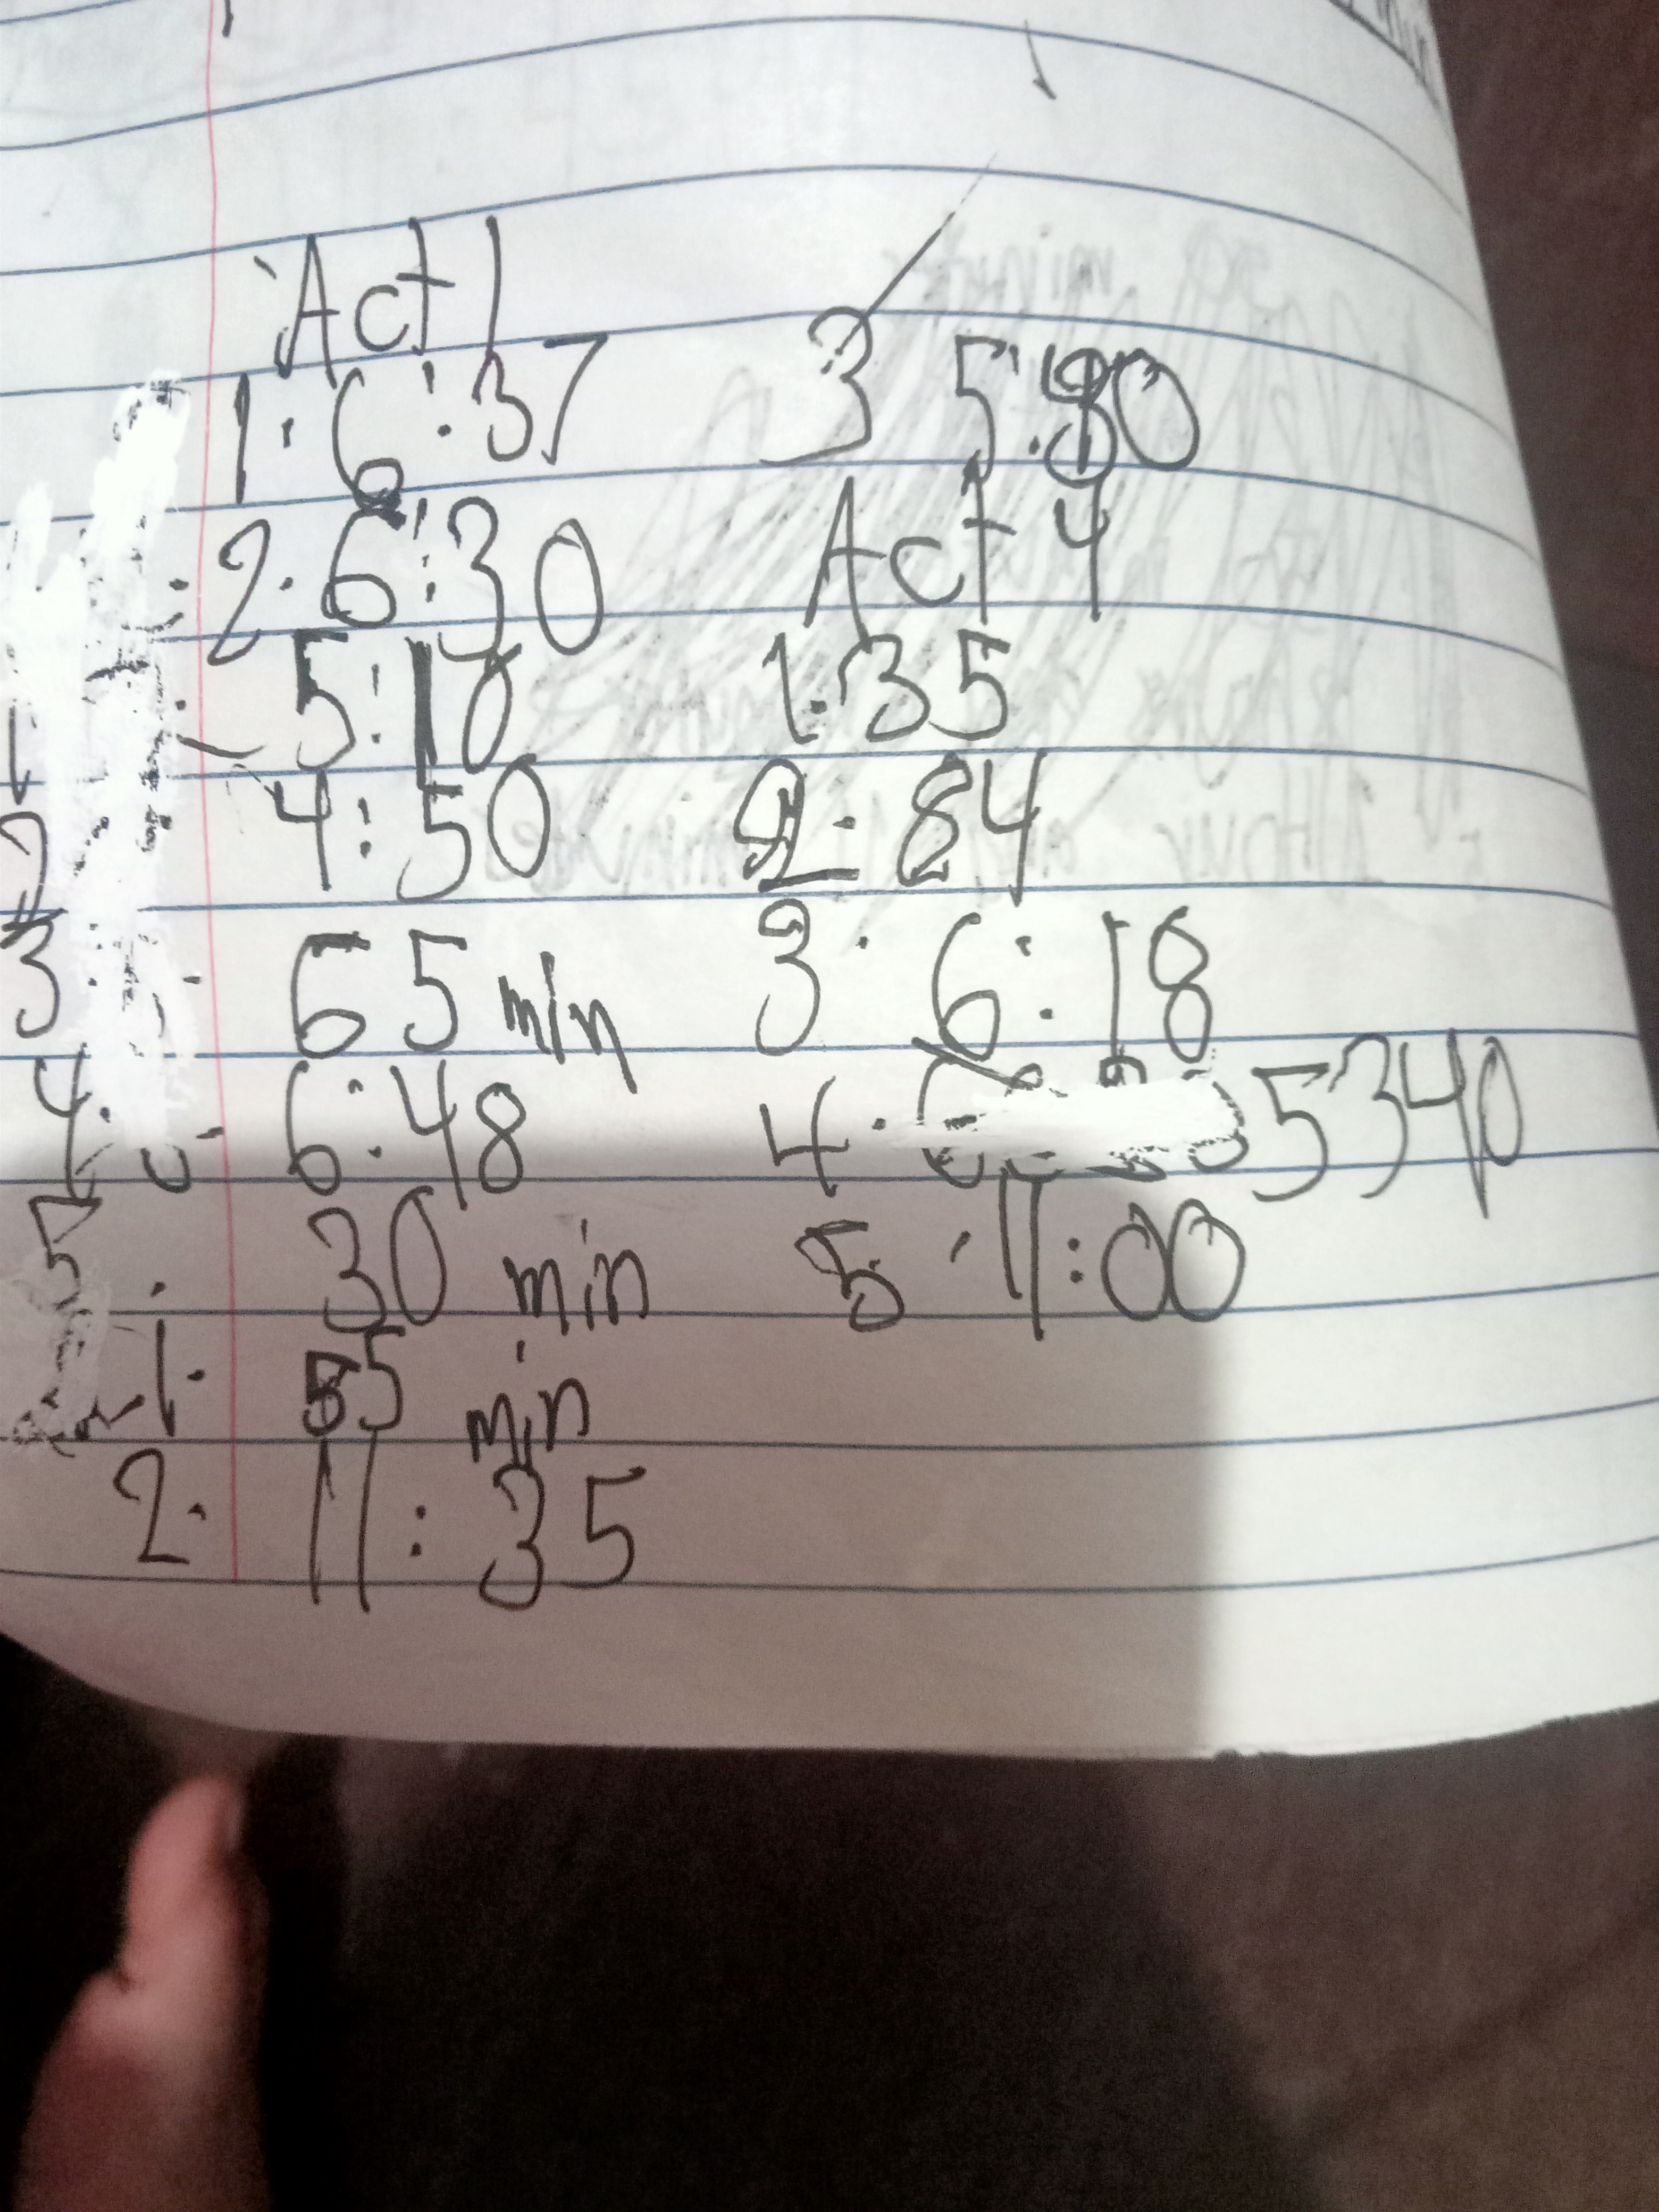 Act 1
1. 6:37
2. 6:30
1 5:10
2 4:50
3. 65 min
4. 6:48
5. 30 min
1. 55 min
2. 11:35
3 5:30
Act 4
1. 35
2. 84
3. 6:18
4. 5340
5. 11:00